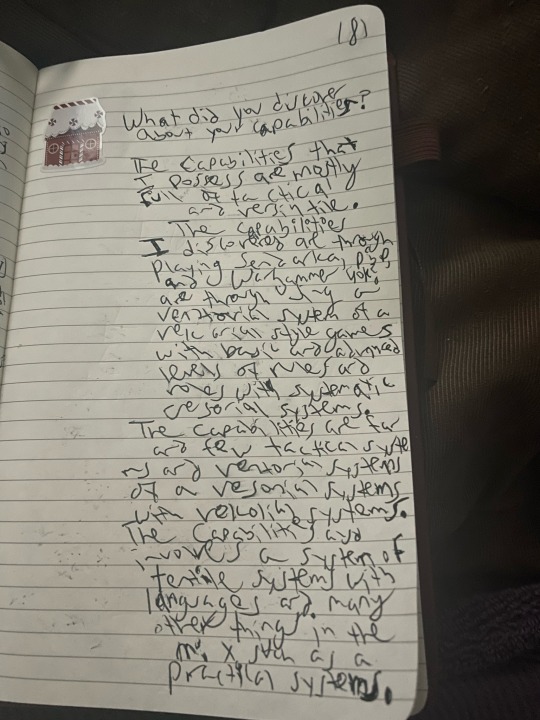 (8)
What did you discover
about your capabilities?
The Capabilities that
I possess are mostly
full of tactical
and versintile.
The capabilities
I discovered are through
playing
and Warhammer 40k,
are through using a
ventiorial system of a
style games
with basic and advanced
levels of rules and
roles with systematic
systems.
The Capabilities are far
and few tactical syste
ms and ventorin systems
of a systems
with systems.
The Capabilities and
involves a system of
systems with
languages and many
other things in the
mix such as a
practical systems.